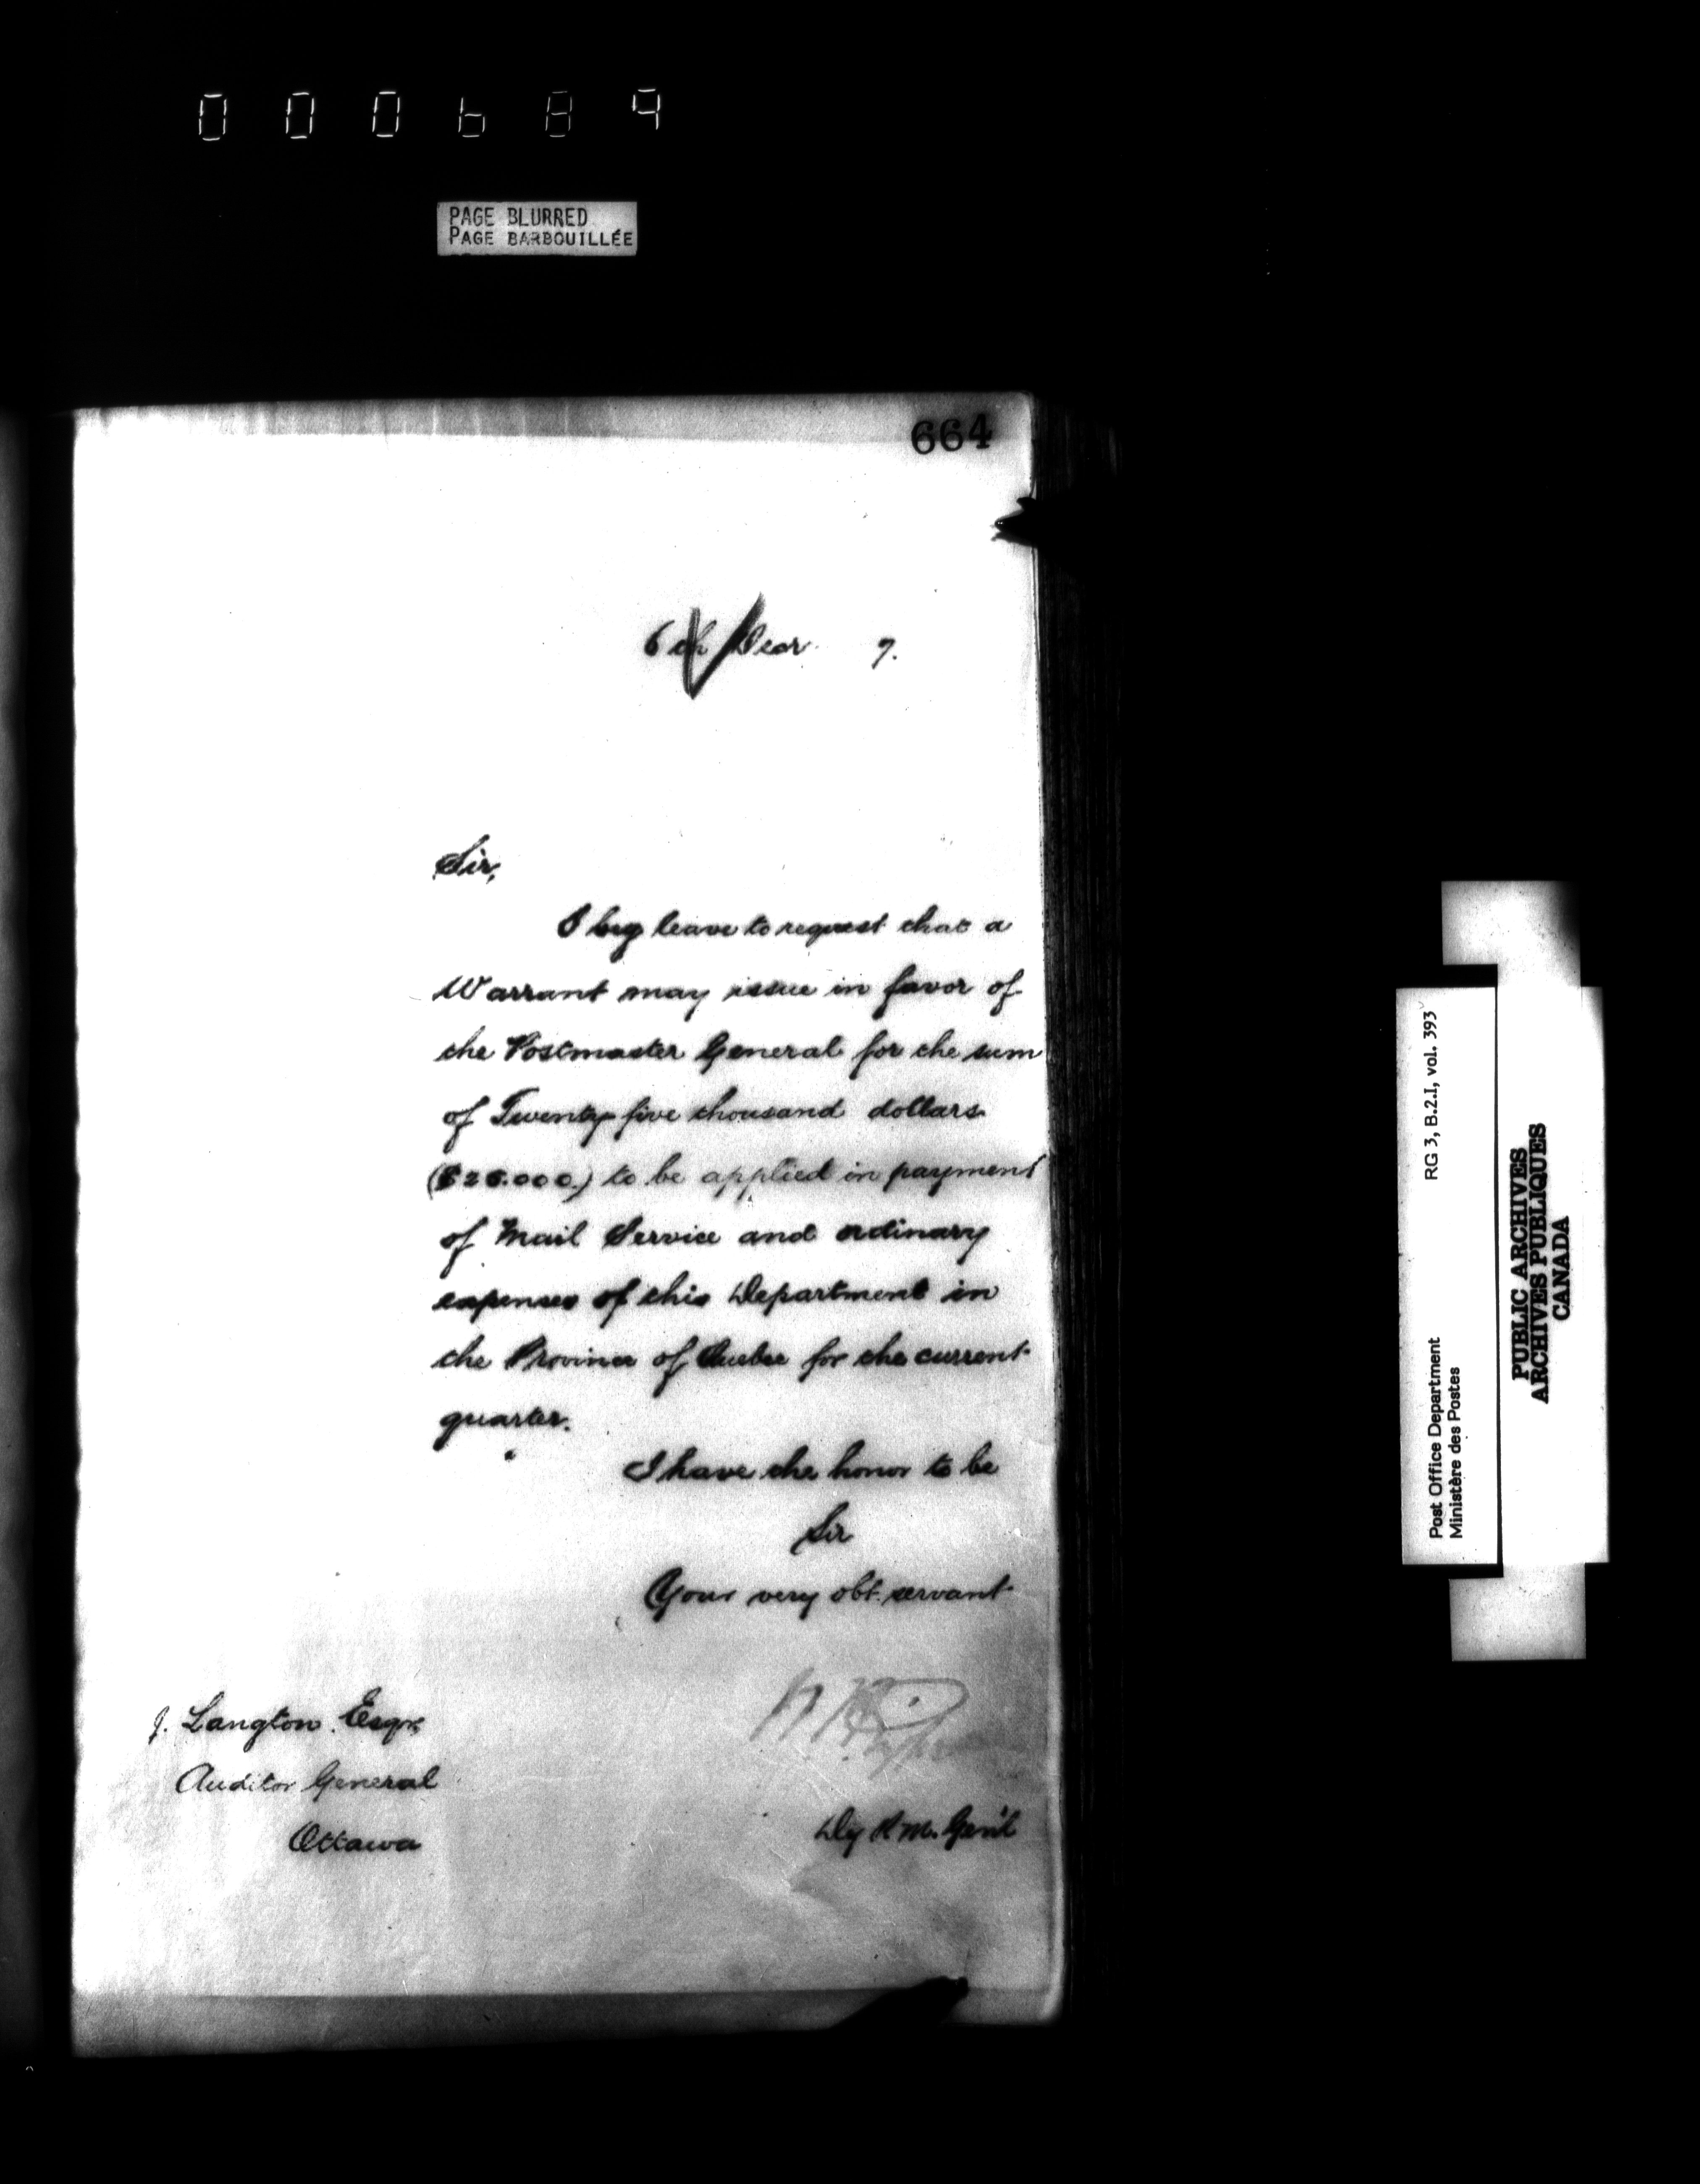 000689
PAGE BLURRED
PAGE BARBOUILLÉE
664
6th Decr 7.
Sir,
I beg leave to request that a
Warrant may issue in favor of
the Postmaster General for the sum
of Twenty five thousand dollars
($25.000.) to be applied in payment
of Mail Service and ordinary
expenses of this Department in
the Province of Quebec for the current
quarter.
I have the honor to be
Sir
Your very obt. servant
J. Langton Esqr.
Auditor General
Ottawa
Dy P.M. Gen'l
RG 3, B.2.I, vol. 393
Post Office Department
Ministère des Postes
PUBLIC ARCHIVES
ARCHIVES PUBLIQUES
CANADA